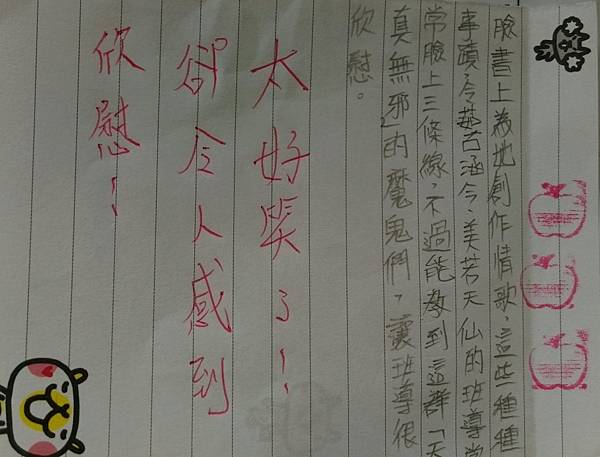 臉書上為她創作情歌,這些種種
事蹟,令茹古涵今、美若天仙的班導常
常臉上三條線,不過能教到這群「天
真無邪」的魔鬼們,讓班導很
欣慰。
太好笑了!
卻令人感到
欣慰!